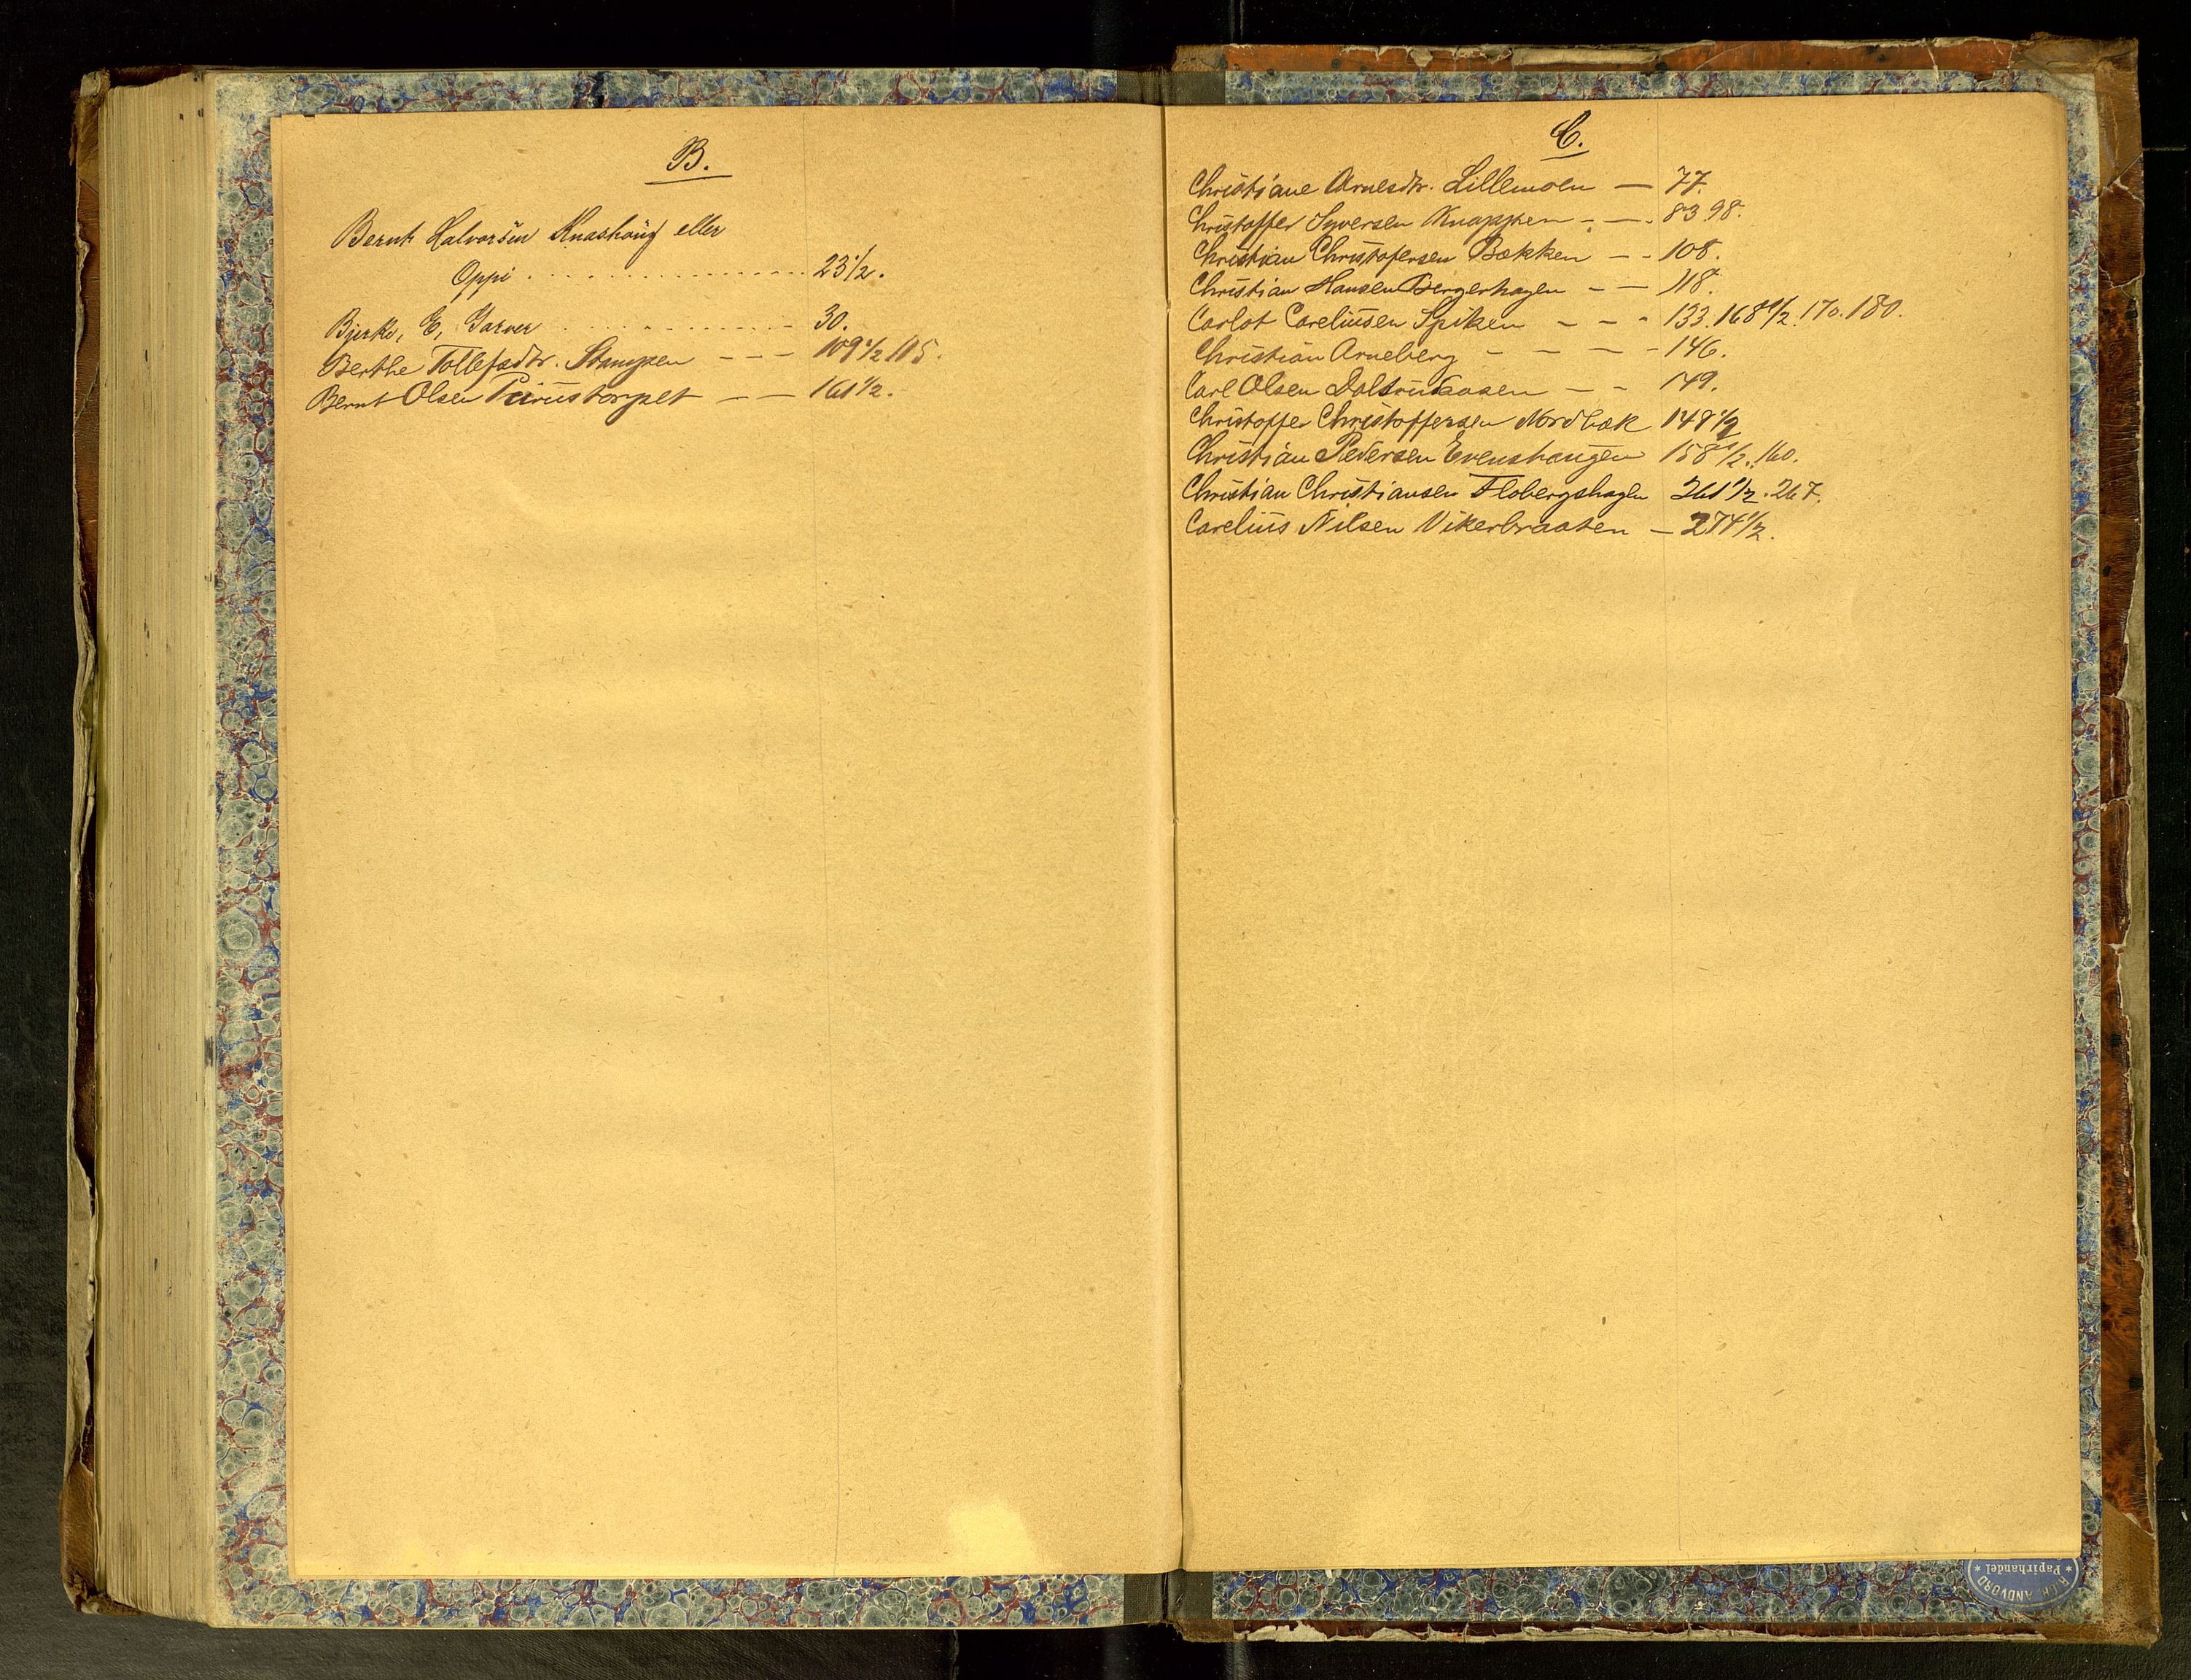 B.
Bernt Halvorsen Knashöug eller
Oppi . . . . . . . . . . . . . . . . 23 1/2.
Bjerke, E, Garver . . . . . . . . . . . . 30.
Berthe Tollefsdtr. Stampen - - - 109 1/2 115.
Bernt Olsen — — 161 1/2.
C.
Christiane Arnesdtr. Lillemoen — 77.
Christoffer Syversen Knappen - — - 83 98.
Christian Christofersen Bækken — - 108.
Christian Hansen Bergerhagen — — 118.
Carlot Careliusen Spiken — — - 133. 168 1/2. 170. 180.
Christian Arneberg - — — — - 146.
Carl Olsen — - 149.
Christoffer Christoffersen Nordbæk 148 1/2
Christian Pedersen Evenshaugen 158 1/2. 160.
Christian Christiansen Flobergshagen 261 1/2. 267.
Carelius Nilsen Vikerbraaten — 274 1/2.
ANDVORD
* Papirhandel *